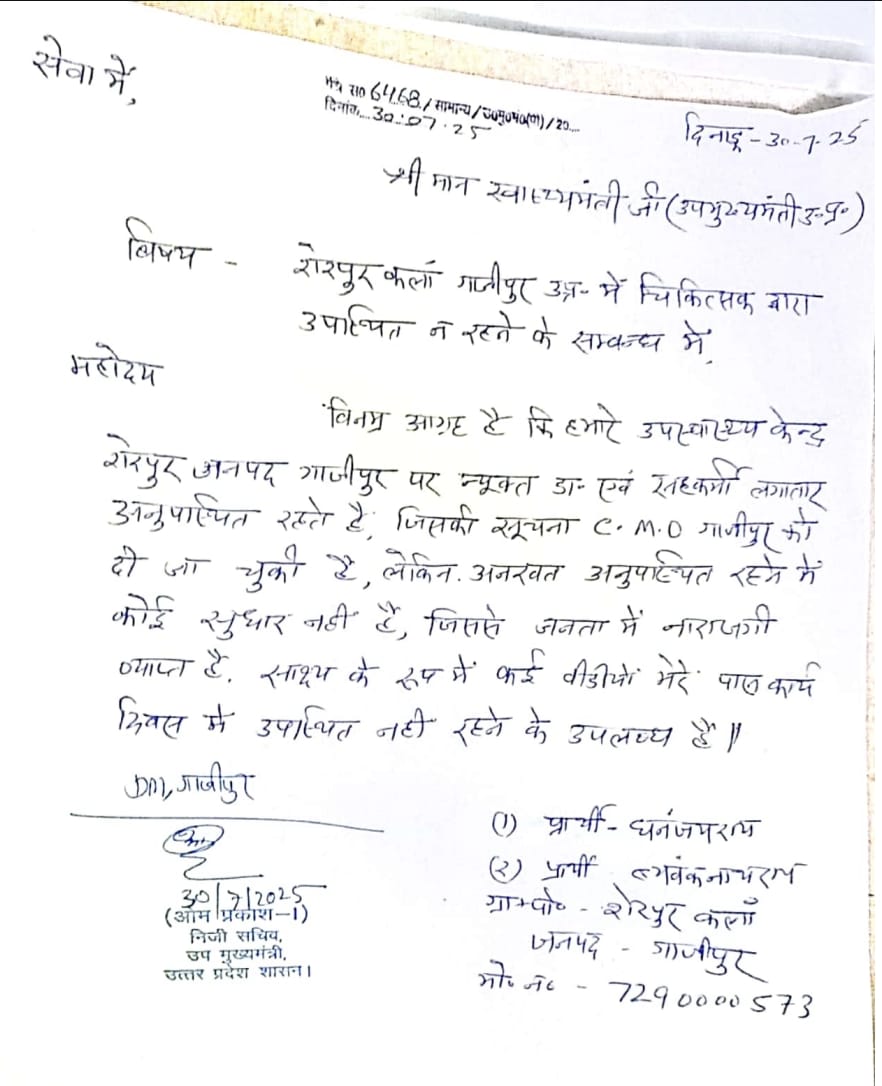 सेवा में,
पत्र सं0 6468/सामान्य/उ0मु0मं0(का)/20....
दिनांक...30.07.25
दिनाङ्क - 30-7-25
श्री मान स्वास्थ्यमंत्री जी (उपमुख्यमंत्री उ॰प्र॰)
विषय - शेरपुर कलाँ गाजीपुर उ॰प्र॰ में चिकित्सक द्वारा
उपास्थित न रहने के सम्बन्ध में,
महोदय
विनम्र आग्रह है कि हमारे उपस्वास्थ्य केन्द्र
शेरपुर जनपद गाजीपुर पर न्यूक्त डा॰ एवं सहकर्मी लगातार
अनुपास्थित रहते है, जिसकी सूचना C.M.O गाजीपुर को
दी जा चुकी है, लेकिन. अनरवत अनुपास्थित रहने में
कोई सुधार नहीं है, जिससे जनता में नाराजगी
व्याप्त है. साक्ष्य के रूप में कई वीडीयों मेरे पास कार्य
दिवस में उपास्थित नही रहने के उपलब्ध है॥
DM, गाजीपुर
30/7/2025
(ओम प्रकाश-I)
निजी सचिव,
उप मुख्यमंत्री,
उत्तर प्रदेश शासन।
(1) प्रार्थी - धनंजय राय
(२) प्रार्थी
ग्रा॰पो॰ - शेरपुर कलाँ
जनपद - गाजीपुर
मो॰ नं॰ - 7290000573